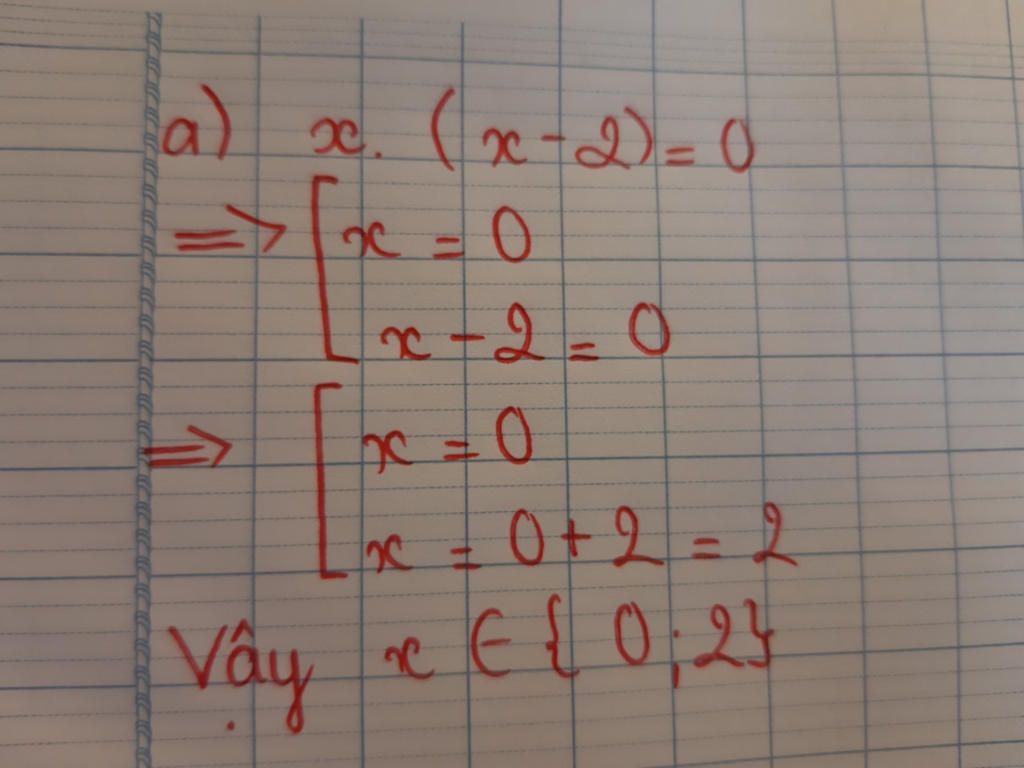 a) x. (x - 2) = 0
=> [ x = 0
x - 2 = 0
=> [ x = 0
x = 0 + 2 = 2
Vậy x ∈ { 0 ; 2}